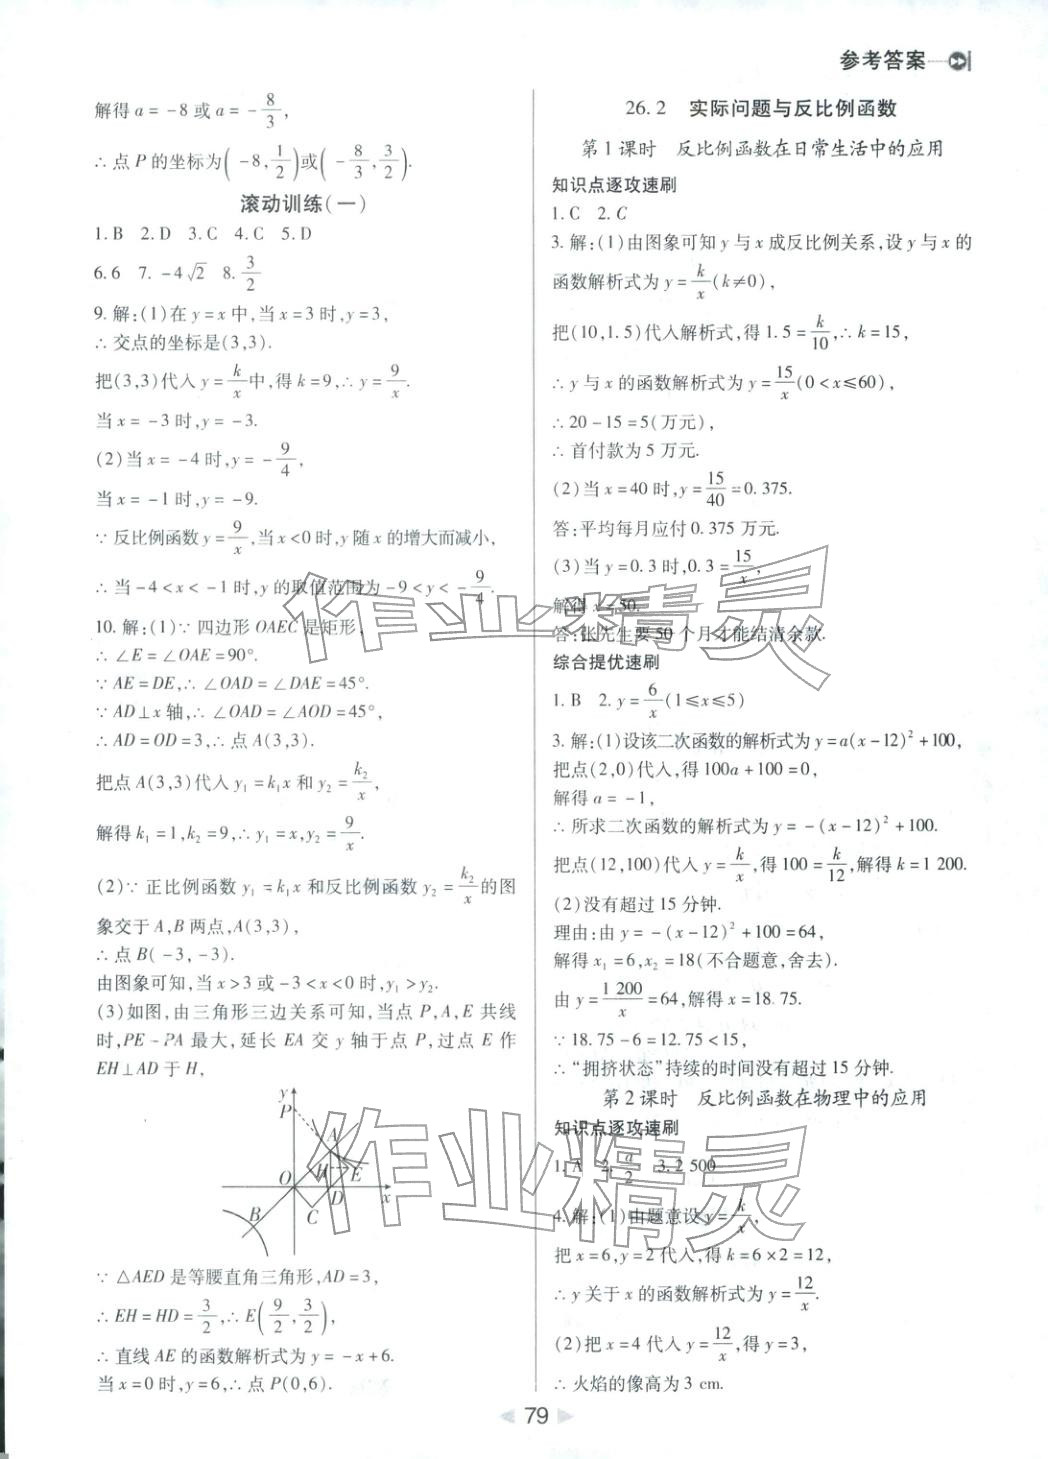 参考答案
解得 a = -8 或 a = -8/3,
∴ 点 P 的坐标为(-8, 1/2)或(-8/3, 3/2).
滚动训练(一)
1. B  2. D  3. C  4. C  5. D
6. 6  7. -4√2  8. 3/2
9. 解:(1)在 y = x 中,当 x = 3 时, y = 3,
∴ 交点的坐标是(3,3).
把(3,3)代入 y = k/x 中,得 k = 9, ∴ y = 9/x.
当 x = -3 时, y = -3.
(2)当 x = -4 时, y = -9/4,
当 x = -1 时, y = -9.
∵ 反比例函数 y = 9/x,当 x < 0 时, y 随 x 的增大而减小,
∴ 当 -4 < x < -1 时, y 的取值范围为 -9 < y < -9/4.
10. 解:(1)∵ 四边形 OAEC 是矩形,
∴ ∠E = ∠OAE = 90°.
∵ AE = DE, ∴ ∠OAD = ∠DAE = 45°.
∵ AD⊥x 轴, ∴ ∠OAD = ∠AOD = 45°,
∴ AD = OD = 3, ∴ 点 A(3,3).
把点 A(3,3)代入 y₁ = k₁x 和 y₂ = k₂/x,
解得 k₁ = 1, k₂ = 9, ∴ y₁ = x, y₂ = 9/x.
(2)∵ 正比例函数 y₁ = k₁x 和反比例函数 y₂ = k₂/x 的图
象交于 A, B 两点, A(3,3),
∴ 点 B(-3, -3).
由图象可知,当 x > 3 或 -3 < x < 0 时, y₁ > y₂.
(3)如图,由三角形三边关系可知,当点 P, A, E 共线
时, PE - PA 最大,延长 EA 交 y 轴于点 P,过点 E 作
EH⊥AD 于 H,
y
P
A
H
E
O
D
x
B
C
∵ △AED 是等腰直角三角形, AD = 3,
∴ EH = HD = 3/2, ∴ E(9/2, 3/2),
∴ 直线 AE 的函数解析式为 y = -x + 6.
当 x = 0 时, y = 6, ∴ 点 P(0,6).
26.2  实际问题与反比例函数
第 1 课时  反比例函数在日常生活中的应用
知识点逐攻速刷
1. C  2. C
3. 解:(1)由图象可知 y 与 x 成反比例关系,设 y 与 x 的
函数解析式为 y = k/x (k≠0),
把(10,1.5)代入解析式,得 1.5 = k/10, ∴ k = 15,
∴ y 与 x 的函数解析式为 y = 15/x (0 < x ≤ 60),
∴ 20 - 15 = 5(万元),
∴ 首付款为 5 万元.
(2)当 x = 40 时, y = 15/40 = 0.375.
答:平均每月应付 0.375 万元.
(3)当 y = 0.3 时, 0.3 = 15/x,
解得 x = 50.
答:张先生要 50 个月才能结清余款.
综合提优速刷
1. B  2. y = 6/x (1≤x≤5)
3. 解:(1)设该二次函数的解析式为 y = a(x - 12)² + 100,
把点(2,0)代入,得 100a + 100 = 0,
解得 a = -1,
∴ 所求二次函数的解析式为 y = -(x - 12)² + 100.
把点(12,100)代入 y = k/x,得 100 = k/12,解得 k = 1 200.
(2)没有超过 15 分钟.
理由:由 y = -(x - 12)² + 100 = 64,
解得 x₁ = 6, x₂ = 18(不合题意,舍去).
由 y = 1 200/x = 64,解得 x = 18.75.
∵ 18.75 - 6 = 12.75 < 15,
∴ “拥挤状态”持续的时间没有超过 15 分钟.
第 2 课时  反比例函数在物理中的应用
知识点逐攻速刷
1. A  2. a/2  3. 2 500
4. 解:(1)由题意设 y = k/x,
把 x = 6, y = 2 代入,得 k = 6×2 = 12,
∴ y 关于 x 的函数解析式为 y = 12/x.
(2)把 x = 4 代入 y = 12/x,得 y = 3,
∴ 火焰的像高为 3 cm.
79
作业精灵
作业精灵